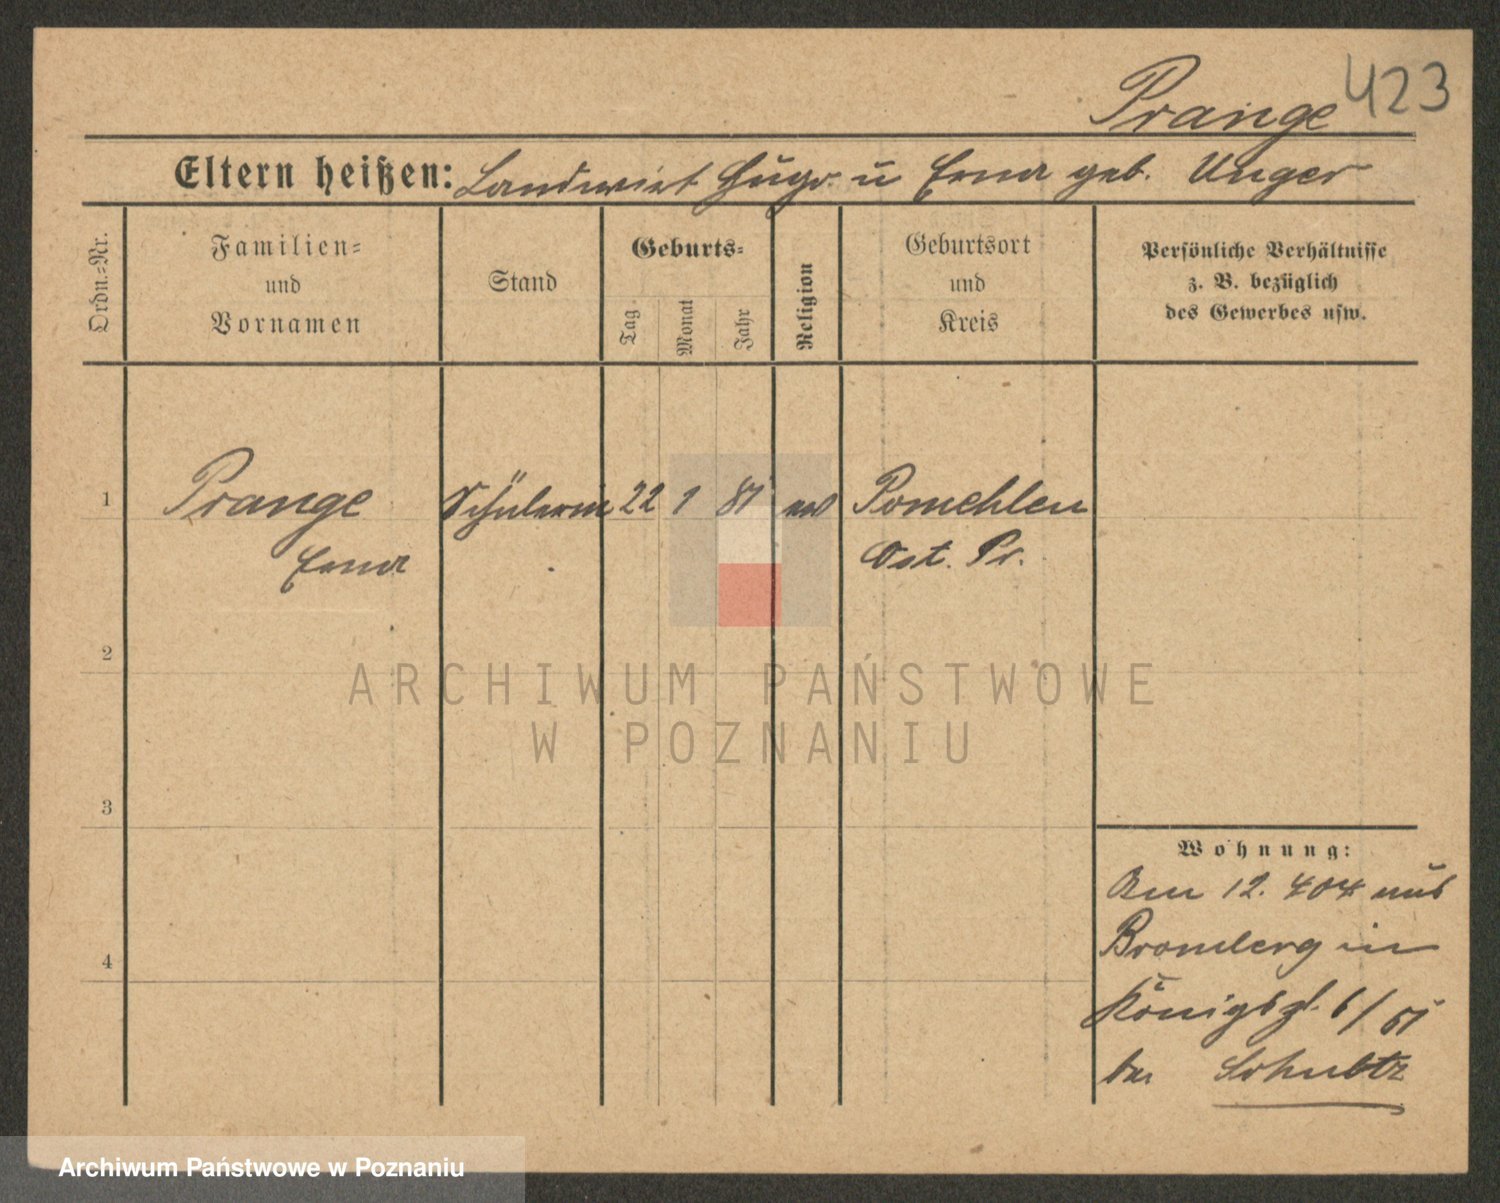 Prange 423
Eltern heißen: Landwirt Hugo u Erna geb. Unger
Ordn.-Nr.
Familien-
und
Vornamen
Stand
Geburts-
Tag
Monat
Jahr
Religion
Geburtsort
und
Kreis
Persönliche Verhältnisse
z. B. bezüglich
des Gewerbes usw.
1 Prange Schülerin 22 1 87 ev Pomehlen
Erna Ost. Pr.
2
3
4
Wohnung:
Am 12. 404 aus
Bromberg in
Königspl. 6/
bei Schultz
ARCHIWUM PAŃSTWOWE
W POZNANIU
Archiwum Państwowe w Poznaniu